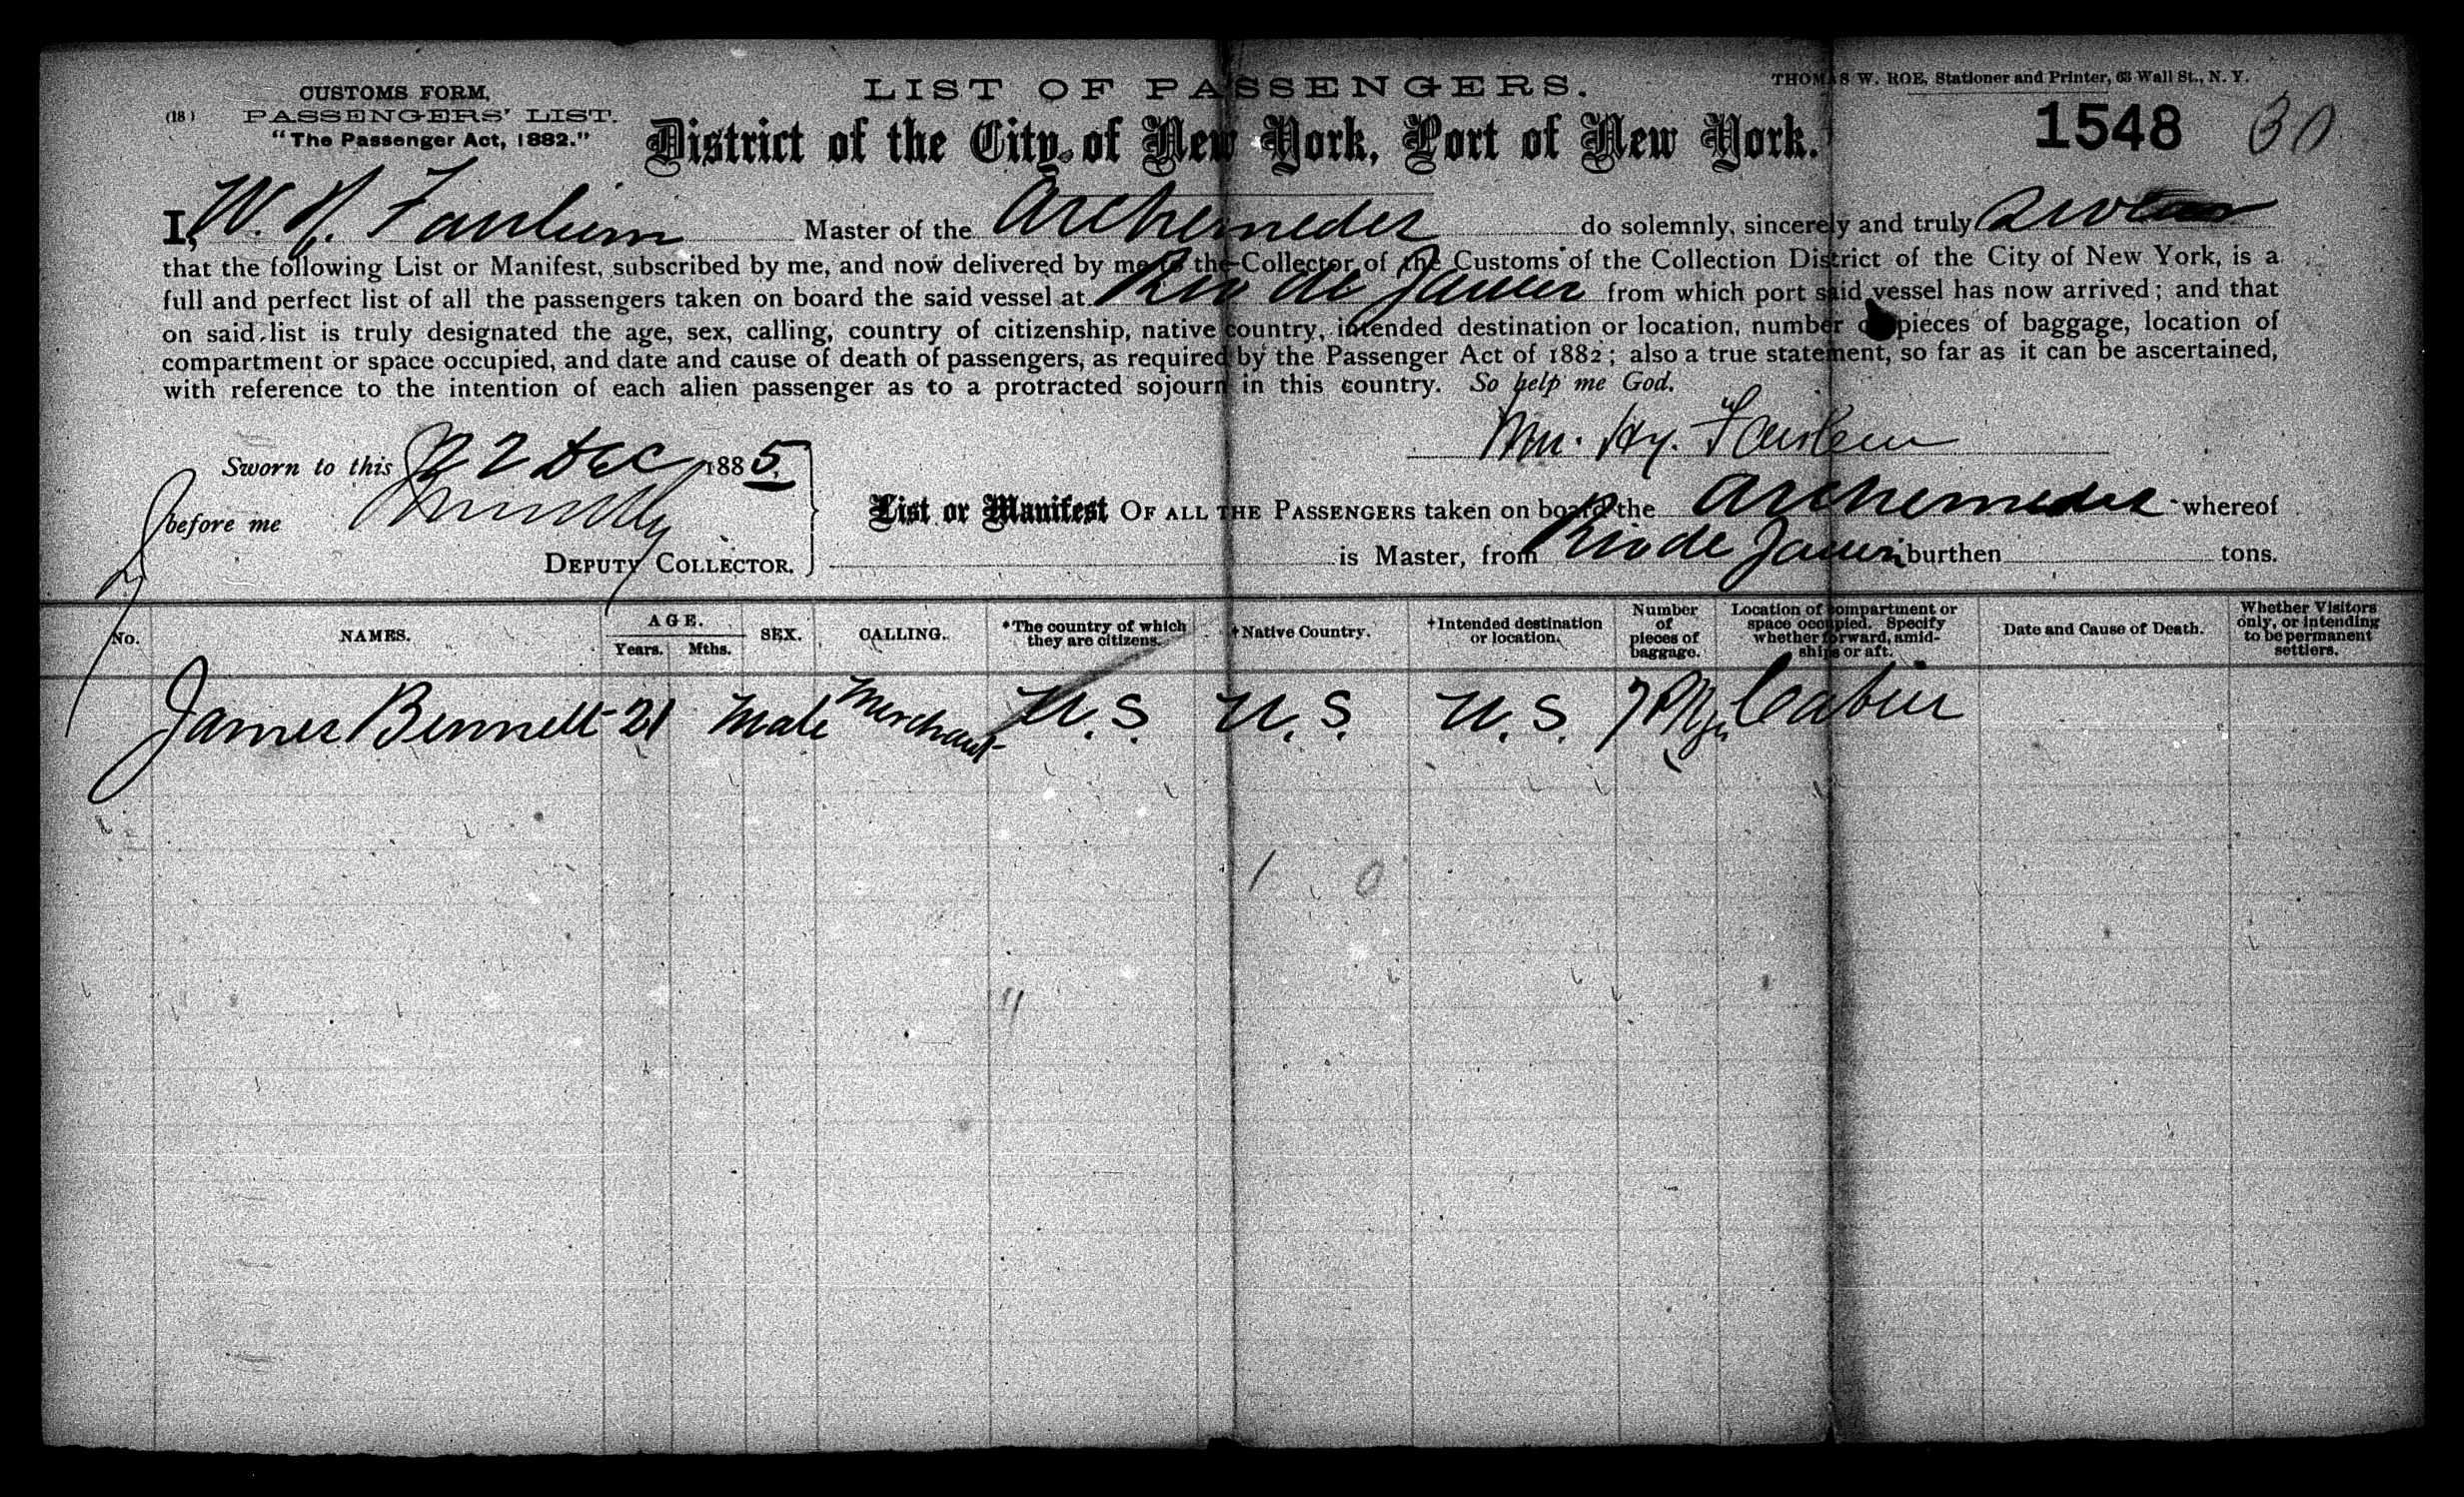 LIST OF PASSENGERS.
THOMAS W. ROE, Stationer and Printer, 63 Wall St., N. Y.
CUSTOMS FORM,
(18) PASSENGERS' LIST.
"The Passenger Act, 1882."
District of the City of New York, Port of New York.
1548 30
I, W. H. Master of the Archemedes do solemnly, sincerely and truly swear
that the following List or Manifest, subscribed by me, and now delivered by me to the Collector of the Customs of the Collection District of the City of New York, is a
full and perfect list of all the passengers taken on board the said vessel at Rio de Janeir from which port said vessel has now arrived; and that
on said list is truly designated the age, sex, calling, country of citizenship, native country, intended destination or location, number of pieces of baggage, location of
compartment or space occupied, and date and cause of death of passengers, as required by the Passenger Act of 1882; also a true statement, so far as it can be ascertained,
with reference to the intention of each alien passenger as to a protracted sojourn in this country. So help me God.
Wm. Hy.
Sworn to this 22 Dec 1885
before me
DEPUTY COLLECTOR.
List or Manifest OF ALL THE PASSENGERS taken on board the Archemedes whereof
is Master, from Rio de Janeir burthen tons.
No. NAMES. AGE. Years. Mths. SEX. CALLING. *The country of which they are citizens. †Native Country. †Intended destination or location. Number of pieces of baggage. Location of compartment or space occupied. Specify whether forward, amidships or aft. Date and Cause of Death. Whether Visitors only, or intending to be permanent settlers.
James Bennett 21 Male Merchant U.S. U.S. U.S. 7 Pkgs Cabin
1 0